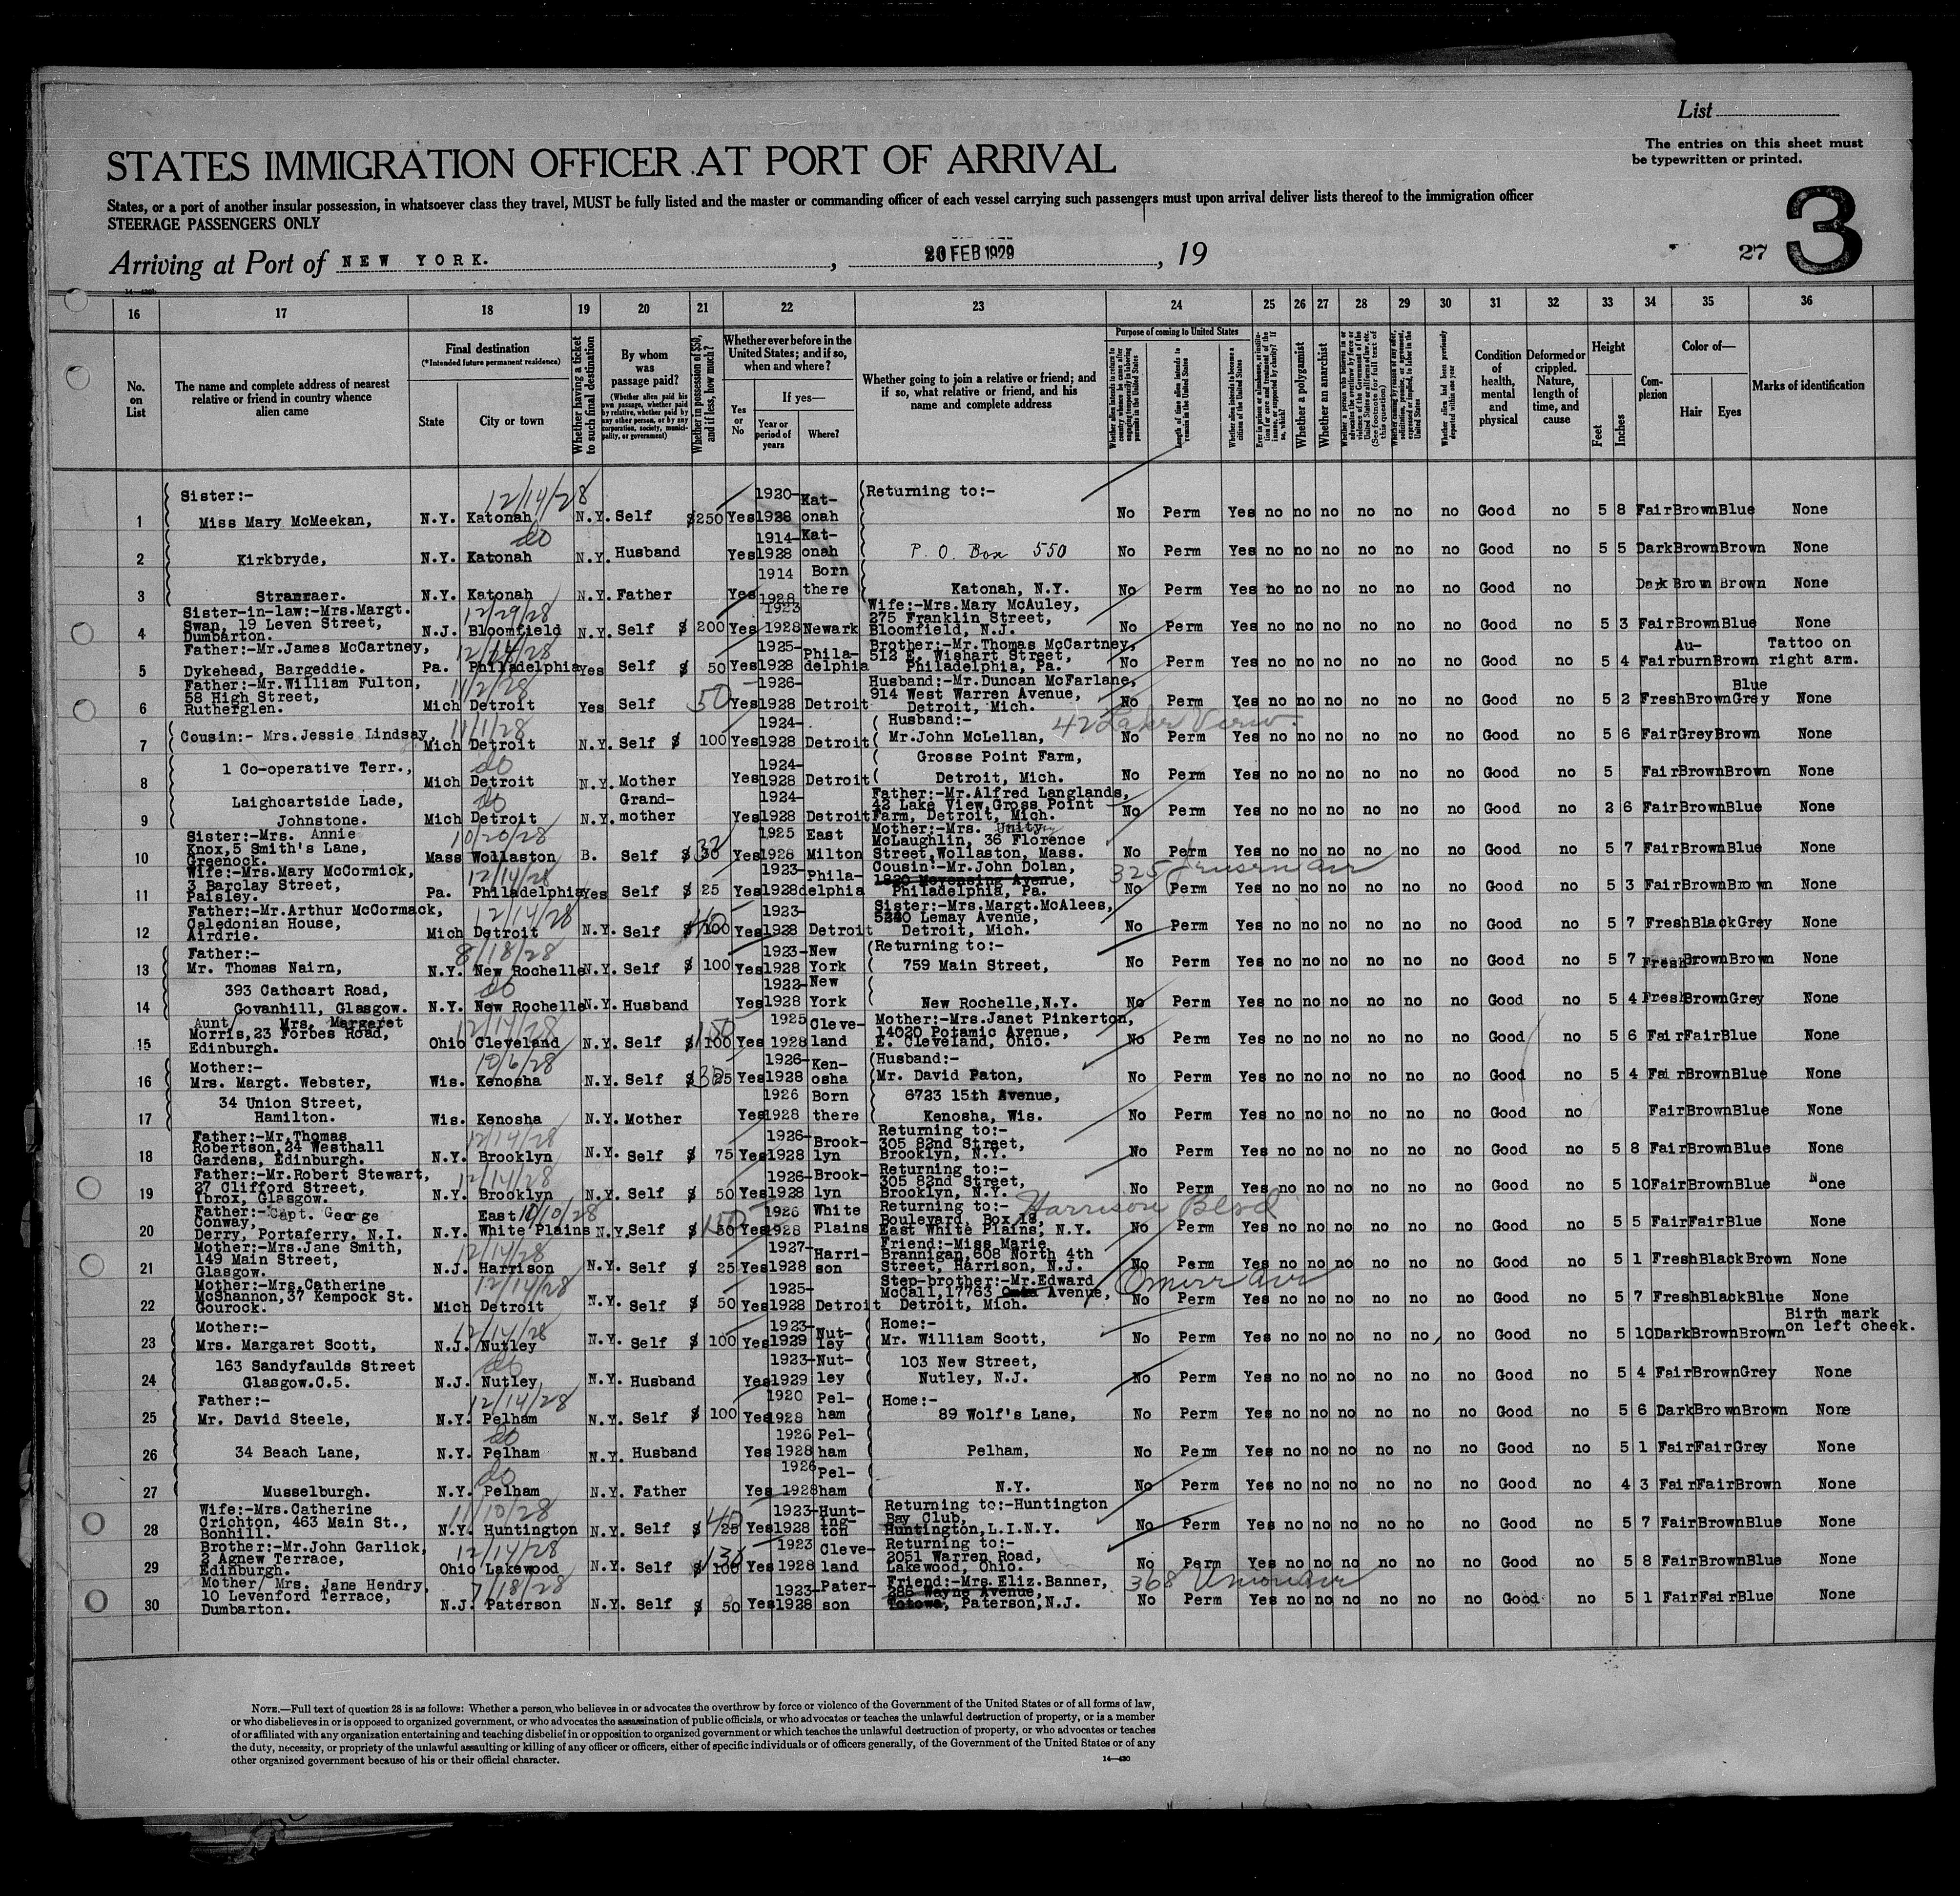 List
The entries on this sheet must
be typewritten or printed.
STATES IMMIGRATION OFFICER AT PORT OF ARRIVAL
States, or a port of another insular possession, in whatsoever class they travel, MUST be fully listed and the master or commanding officer of each vessel carrying such passengers must upon arrival deliver lists thereof to the immigration officer
STEERAGE PASSENGERS ONLY
3
Arriving at Port of NEW YORK. , 20 FEB 1929 , 19 27
16 17 18 19 20 21 22 23 24 25 26 27 28 29 30 31 32 33 34 35 36
No. on List
The name and complete address of nearest relative or friend in country whence alien came
Final destination
(*Intended future permanent residence)
State
City or town
Whether having a ticket to such final destination
By whom was passage paid?
(Whether alien paid his own passage, whether paid by relative, whether paid by any other person, or by any corporation, society, municipality, or government)
Whether in possession of $50, and if less, how much?
Whether ever before in the United States; and if so, when and where?
Yes or No
If yes—
Year or period of years
Where?
Whether going to join a relative or friend; and if so, what relative or friend, and his name and complete address
Purpose of coming to United States
Whether a polygamist
Whether an anarchist
Condition of health, mental and physical
Deformed or crippled. Nature, length of time, and cause
Height
Feet
Inches
Complexion
Color of—
Hair
Eyes
Marks of identification
1 Sister:- Miss Mary McMeekan, N.Y. Katonah 12/14/28 N.Y. Self $250 Yes 1920-1928 Katonah (Returning to:- No Perm Yes no no no no no no Good no 5 8 Fair Brown Blue None
2 Kirkbryde, N.Y. Katonah do N.Y. Husband Yes 1914-1928 Katonah P. O. Box 550 No Perm Yes no no no no no no Good no 5 5 Dark Brown Brown None
3 Stranraer. N.Y. Katonah N.Y. Father Yes 1914 1928 Born there Katonah, N.Y. No Perm Yes no no no no no no Good no Dark Brown Brown None
4 Sister-in-law:-Mrs.Margt. Swan, 19 Leven Street, Dumbarton. N.J. Bloomfield 12/29/28 N.Y. Self $ 200 Yes 1923 1928 Newark Wife:-Mrs.Mary McAuley, 275 Franklin Street, Bloomfield, N.J. No Perm Yes no no no no no no Good no 5 3 Fair Brown Blue None
5 Father:-Mr.James McCartney, Dykehead, Bargeddie. Pa. Philadelphia 12/14/28 Yes Self $ 50 Yes 1925-1928 Philadelphia Brother:-Mr.Thomas McCartney, 512 E. Wishart Street, Philadelphia, Pa. No Perm Yes no no no no no no Good no 5 4 Fair Auburn Brown Tattoo on right arm.
6 Father:-Mr.William Fulton, 58 High Street, Rutherglen. Mich Detroit 11/2/28 Yes Self 50 Yes 1926-1928 Detroit Husband:-Mr.Duncan McFarlane, 914 West Warren Avenue, Detroit, Mich. No Perm Yes no no no no no no Good no 5 2 Fresh Brown Blue Grey None
7 Cousin:- Mrs.Jessie Lindsay, Mich Detroit 11/1/28 N.Y. Self $ 100 Yes 1924-1928 Detroit (Husband:- Mr.John McLellan, 42 Lake View. No Perm Yes no no no no no no Good no 5 6 Fair Grey Brown None
8 1 Co-operative Terr., Mich Detroit do N.Y. Mother Yes 1924-1928 Detroit Grosse Point Farm, Detroit, Mich. No Perm Yes no no no no no no Good no 5 Fair Brown Brown None
9 Laighcartside Lade, Johnstone. Mich Detroit do N.Y. Grand-mother Yes 1924-1928 Detroit Father:-Mr.Alfred Langlands, 42 Lake View,Gross Point Farm, Detroit, Mich. No Perm Yes no no no no no no Good no 2 6 Fair Brown Blue None
10 Sister:-Mrs. Annie Knox,5 Smith's Lane, Greenock. Mass Wollaston 10/20/28 B. Self $ 30 Yes 1925 1928 East Milton Mother:-Mrs. Unity McLaughlin, 36 Florence Street,Wollaston, Mass. No Perm Yes no no no no no no Good no 5 7 Fair Brown Blue None
11 Wife:-Mrs.Mary McCormick, 3 Barclay Street, Paisley. Pa. Philadelphia 12/14/28 Yes Self $ 25 Yes 1923-1928 Philadelphia Cousin:-Mr.John Dolan, Philadelphia, Pa. 325 No Perm Yes no no no no no no Good no 5 3 Fair Brown Brown None
12 Father:-Mr.Arthur McCormack, Caledonian House, Airdrie. Mich Detroit 12/14/28 N.Y. Self $ 100 Yes 1923-1928 Detroit Sister:-Mrs.Margt.McAlees, Lemay Avenue, Detroit, Mich. No Perm Yes no no no no no no Good no 5 7 Fresh Black Grey None
13 Father:- Mr. Thomas Nairn, N.Y. New Rochelle 8/18/28 N.Y. Self $ 100 Yes 1923-1928 New York (Returning to:- 759 Main Street, No Perm Yes no no no no no no Good no 5 7 Fresh Brown Brown None
14 393 Cathcart Road, Govanhill, Glasgow. N.Y. New Rochelle do N.Y. Husband Yes 1922-1928 New York New Rochelle,N.Y. No Perm Yes no no no no no no Good no 5 4 Fresh Brown Grey None
15 Aunt/ Mrs. Margaret Morris,23 Forbes Road, Edinburgh. Ohio Cleveland 12/14/28 N.Y. Self $ 100 150 Yes 1925 1928 Cleveland Mother:-Mrs.Janet Pinkerton, 14020 Potamic Avenue, E. Cleveland, Ohio. No Perm Yes no no no no no no Good no 5 6 Fair Fair Blue None
16 Mother:- Mrs. Margt. Webster, Wis. Kenosha 10/6/28 N.Y. Self $ 25 Yes 1926-1928 Kenosha (Husband:- Mr. David Paton, No Perm Yes no no no no no no Good no 5 4 Fair Brown Blue None
17 34 Union Street, Hamilton. Wis. Kenosha N.Y. Mother Yes 1926 1928 Born there 6723 15th Avenue, Kenosha, Wis. No Perm Yes no no no no no no Good no Fair Brown Blue None
18 Father:-Mr.Thomas Robertson,24 Westhall Gardens, Edinburgh. N.Y. Brooklyn 12/14/28 N.Y. Self $ 75 Yes 1926-1928 Brooklyn Returning to:- 305 82nd Street, Brooklyn, N.Y. No Perm Yes no no no no no no Good no 5 8 Fair Brown Blue None
19 Father:-Mr.Robert Stewart, 27 Clifford Street, Ibrox, Glasgow. N.Y. Brooklyn 12/14/28 N.Y. Self $ 50 Yes 1926-1928 Brooklyn Returning to:- 305 82nd Street, Brooklyn, N.Y. No Perm Yes no no no no no no Good no 5 10 Fair Brown Blue None
20 Father:-Capt. George Conway, Derry, Portaferry. N.I. N.Y. East White Plains 10/10/28 N.Y. Self $ 50 Yes 1926 1928 White Plains Returning to:- Harrison Blvd Boulevard, Box 18, East White Plains, N.Y. No Perm Yes no no no no no no Good no 5 5 Fair Fair Blue None
21 Mother:-Mrs.Jane Smith, 149 Main Street, Glasgow. N.J. Harrison 12/14/28 N.Y. Self $ 25 Yes 1927-1928 Harrison Friend:-Miss Marie Brannigan,608 North 4th Street, Harrison, N.J. No Perm Yes no no no no no no Good no 5 1 Fresh Black Brown None
22 Mother:-Mrs.Catherine McShannon,37 Kempock St. Gourock. Mich Detroit 12/14/28 N.Y. Self $ 50 Yes 1925-1928 Detroit Step-brother:-Mr.Edward McCall,17763 Avenue, Detroit, Mich. No Perm Yes no no no no no no Good no 5 7 Fresh Black Blue None
23 Mother:- Mrs. Margaret Scott, N.J. Nutley 12/14/28 N.Y. Self $ 100 Yes 1923-1929 Nutley Home:- Mr. William Scott, No Perm Yes no no no no no no Good no 5 10 Dark Brown Brown Birth mark on left cheek.
24 163 Sandyfaulds Street Glasgow.C.5. N.J. Nutley do N.Y. Husband Yes 1923-1929 Nutley 103 New Street, Nutley, N.J. No Perm Yes no no no no no no Good no 5 4 Fair Brown Grey None
25 Father:- Mr. David Steele, N.Y. Pelham 12/14/28 N.Y. Self $ 100 Yes 1920 1928 Pelham Home:- 89 Wolf's Lane, No Perm Yes no no no no no no Good no 5 6 Dark Brown Brown None
26 34 Beach Lane, N.Y. Pelham do N.Y. Husband Yes 1926 1928 Pelham Pelham, No Perm Yes no no no no no no Good no 5 1 Fair Fair Grey None
27 Musselburgh. N.Y. Pelham do N.Y. Father Yes 1926 1928 Pelham N.Y. No Perm Yes no no no no no no Good no 4 3 Fair Fair Brown None
28 Wife:-Mrs.Catherine Crichton, 463 Main St., Bonhill. N.Y. Huntington 11/10/28 N.Y. Self $ 25 40 Yes 1923-1928 Huntington Returning to:-Huntington Bay Club, Huntington,L.I.N.Y. No Perm Yes no no no no no no Good no 5 7 Fair Brown Blue None
29 Brother:-Mr.John Garlick, 2 Agnew Terrace, Edinburgh. Ohio Lakewood 12/14/28 N.Y. Self $ 100 130 Yes 1923 1928 Cleveland Returning to:- 2051 Warren Road, Lakewood, Ohio. No Perm Yes no no no no no no Good no 5 8 Fair Brown Blue None
30 Mother/ Mrs. Jane Hendry, 10 Levenford Terrace, Dumbarton. N.J. Paterson 7/18/28 N.Y. Self $ 50 Yes 1923-1928 Paterson Friend:-Mrs.Eliz.Banner, 286 Wayne Avenue, Totowa, Paterson,N.J. 368 Union ave No Perm Yes no no no no no no Good no 5 1 Fair Fair Blue None
NOTE.—Full text of question 28 is as follows: Whether a person who believes in or advocates the overthrow by force or violence of the Government of the United States or of all forms of law,
or who disbelieves in or is opposed to organized government, or who advocates the assassination of public officials, or who advocates or teaches the unlawful destruction of property, or is a member
of or affiliated with any organization entertaining and teaching disbelief in or opposition to organized government or which teaches the unlawful destruction of property, or who advocates or teaches
the duty, necessity, or propriety of the unlawful assaulting or killing of any officer or officers, either of specific individuals or of officers generally, of the Government of the United States or of any
other organized government because of his or their official character.
14—430